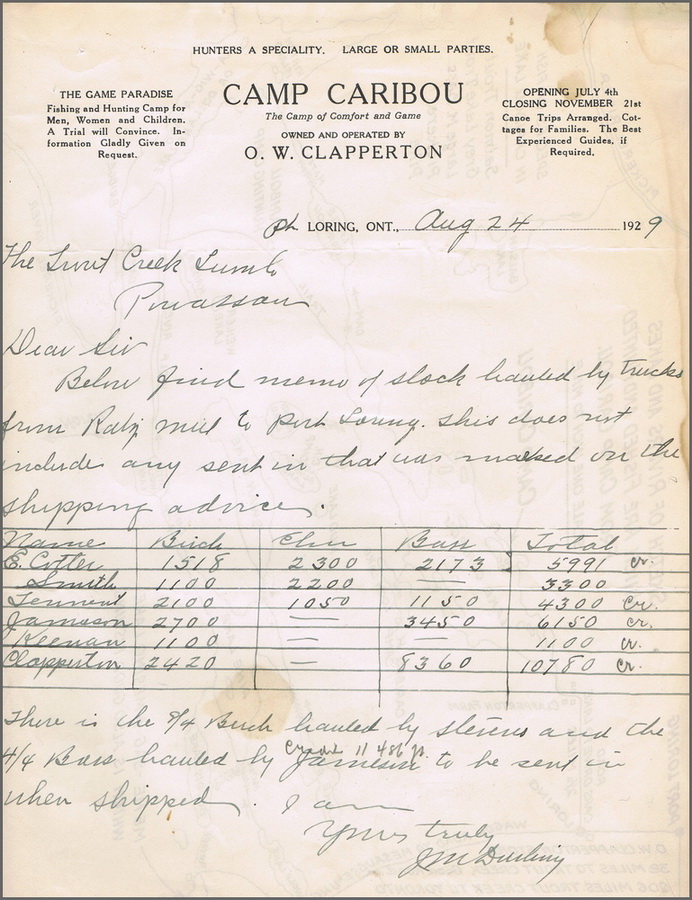 HUNTERS A SPECIALITY. LARGE OR SMALL PARTIES.
THE GAME PARADISE
Fishing and Hunting Camp for
Men, Women and Children.
A Trial will Convince. In-
formation Gladly Given on
Request.
CAMP CARIBOU
The Camp of Comfort and Game
OWNED AND OPERATED BY
O. W. CLAPPERTON
OPENING JULY 4th
CLOSING NOVEMBER 21st
Canoe Trips Arranged. Cot-
tages for Families. The Best
Experienced Guides, if
Required.
pt LORING, ONT., Aug 24 1929
The Trout Creek Lum Co
Powassan
Dear Sir
Below find memo of stock hauled by trucks
from mill to Port Loring. This does not
include any sent in that was marked on the
shipping advice.
Name Birch Elm Bass Total
E. Cotter 1518 2300 2173 5991 cr.
Smith 1100 2200 — 3300
Tennent 2100 1050 1150 4300 cr.
Jamsson 2700 — 3450 6150 cr.
Keenan 1100 — — 1100 cr.
Clapperton 2420 — 8360 10780 cr.
There is the 8/4 Birch hauled by Stevens and the
4/4 Bass hauled by Jameson to be sent in
when shipped. I am
Yours truly
J M Darling